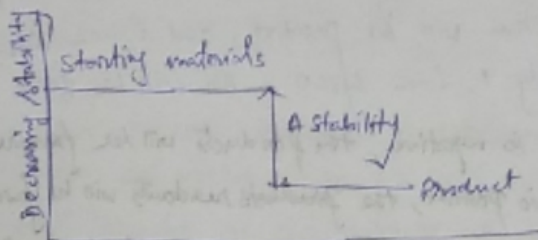 Decreasing Stability
Starting materials
Δ Stability
Product